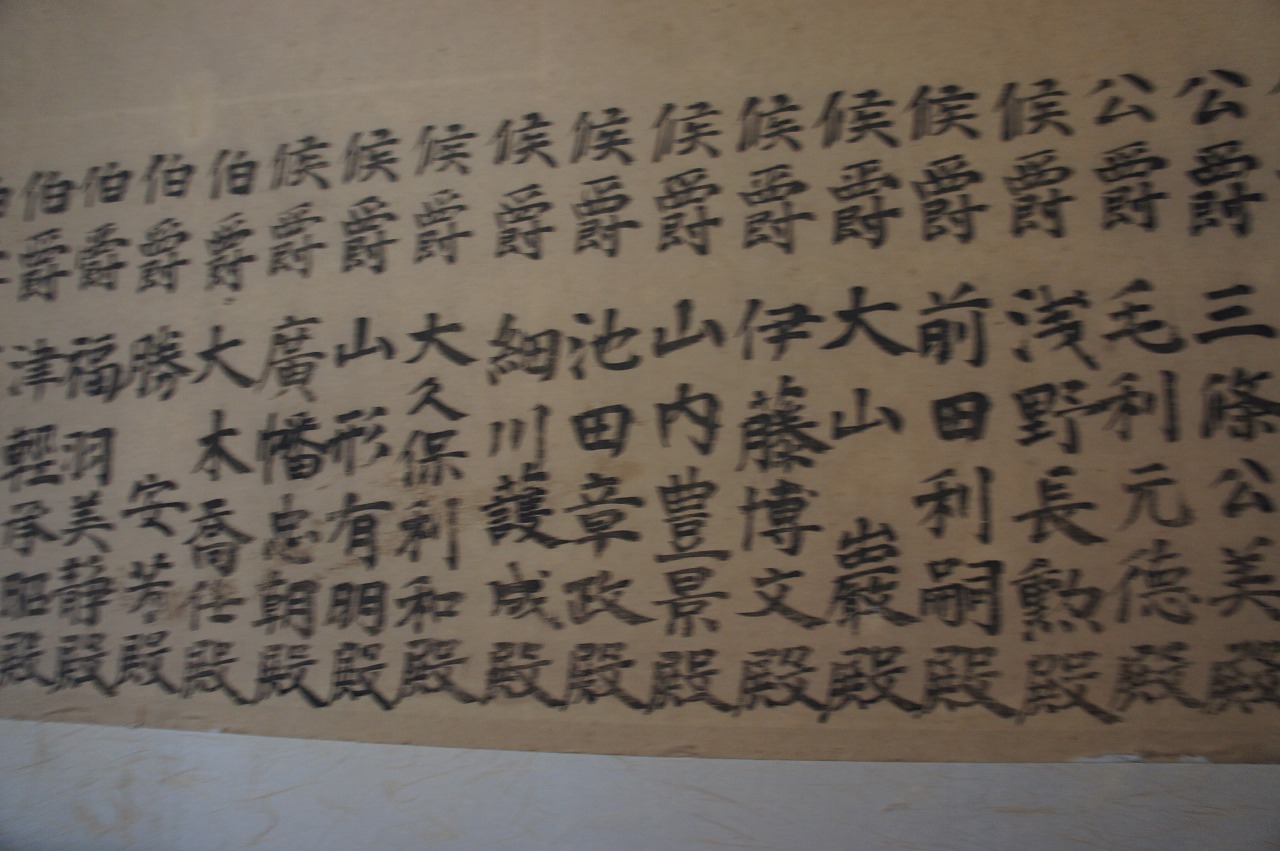 公爵 三條公美殿
公爵 毛利元德殿
侯爵 浅野長勲殿
侯爵 前田利嗣殿
侯爵 大山巌殿
侯爵 伊藤博文殿
侯爵 山内豊景殿
侯爵 池田章政殿
侯爵 細川護成殿
侯爵 大久保利和殿
侯爵 山形有明殿
侯爵 廣幡忠朝殿
伯爵 大木喬任殿
伯爵 勝安芳殿
伯爵 福羽美静殿
伯爵 津輕承昭殿